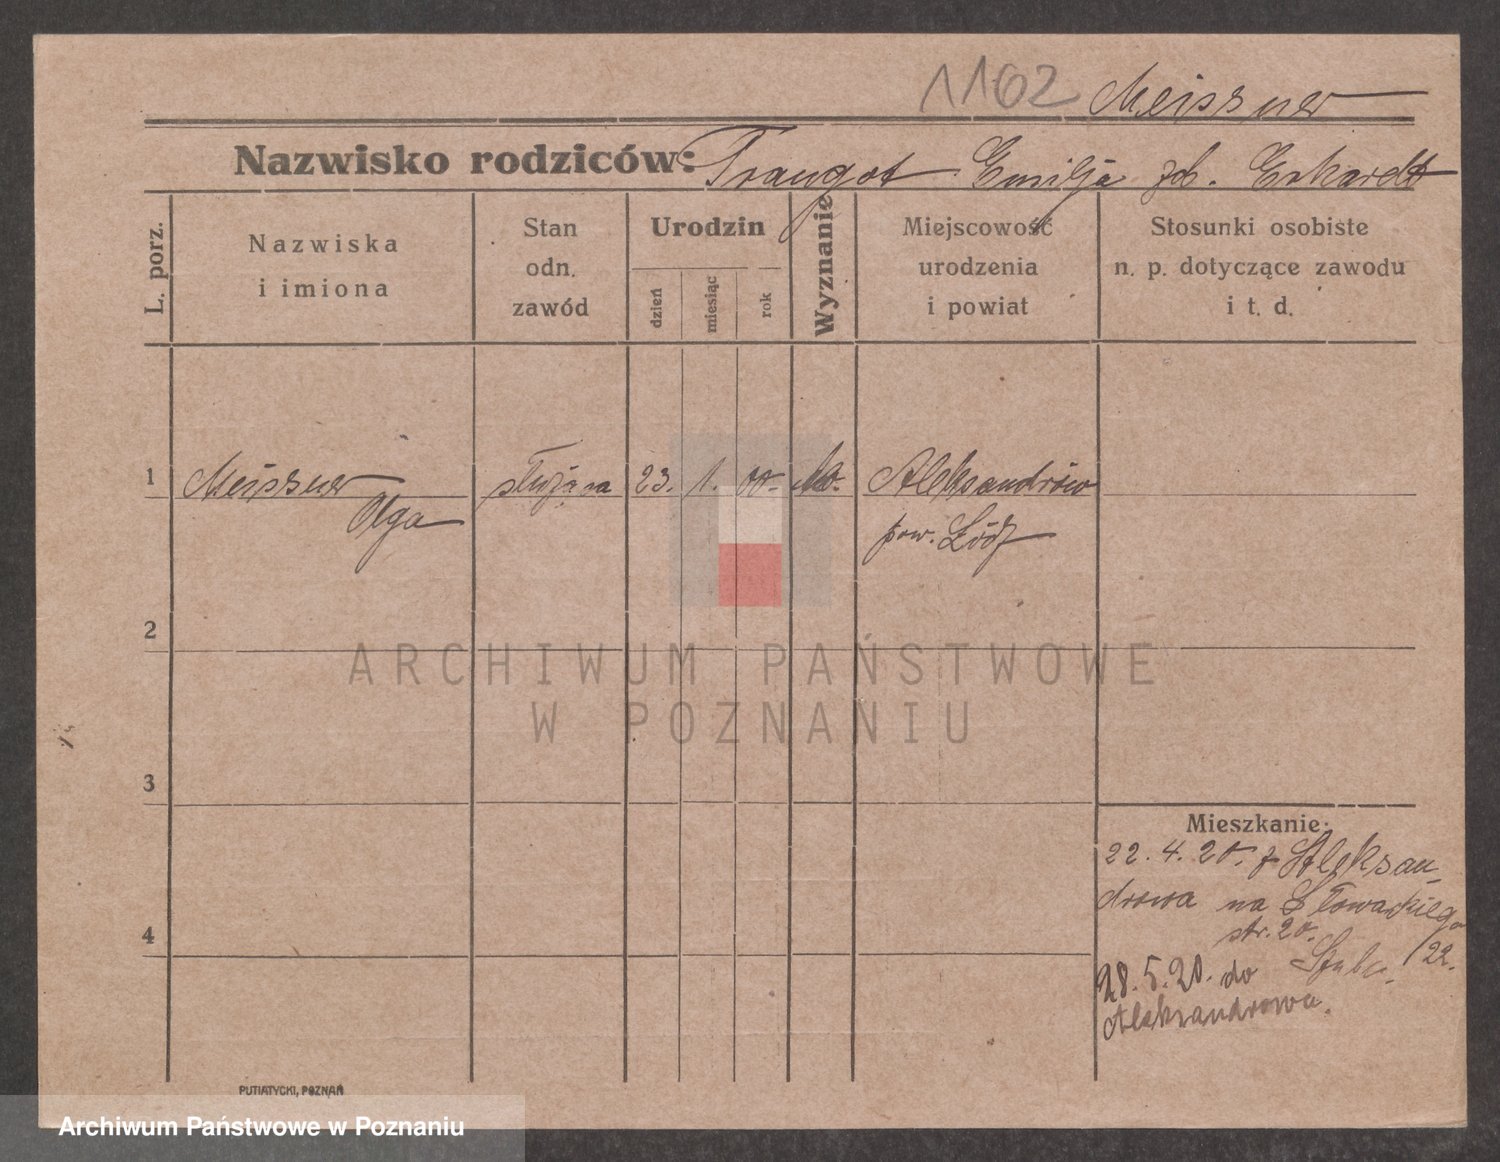 1162 Meissner
Nazwisko rodziców: Traugot Emilja Erhardt
L. porz.
Nazwiska
i imiona
Stan
odn.
zawód
Urodzin
dzień
miesiąc
rok
Wyznanie
Miejscowość
urodzenia
i powiat
Stosunki osobiste
n. p. dotyczące zawodu
i t. d.
1 Meissner służąca 23. 1. 00. Aleksandrów
Olga pow. Łódź
2
3
4
Mieszkanie:
22. 4. 20. z Aleksan-
drowa na Słowackiego
str. 20. /22.
28. 5. 20. do
Aleksandrowa.
PUTIATYCKI, POZNAŃ
ARCHIWUM PAŃSTWOWE
W POZNANIU
Archiwum Państwowe w Poznaniu